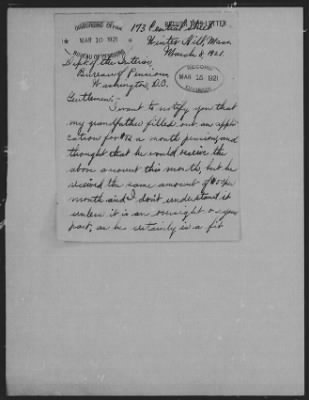 MAR 10 1921
173 Central Street
Winter Hill, Mass.
March 8, 1921.
RECORD
MAR 15 1921
DIVISION
Dept of the Interior
Bureau of Pensions
Washington, D.C.
Gentlemen:
I want to notify you that
my grandfather filled out an appli
cation for $72 a month pension, and
thought that he would receive the
above amount this month, but he
received the same amount of $50 per
month and I don't understand it
unless it is an oversight on your
part, as he certainly is a fit